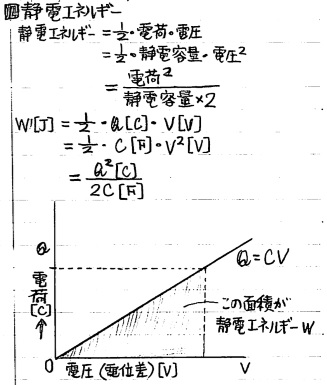 静電エネルギー
静電エネルギー = 1/2・電荷・電圧
= 1/2・静電容量・電圧²
= 電荷²/静電容量×2
W[J] = 1/2・Q[C]・V[V]
= 1/2・C[F]・V²[V]
= Q²[C]/2C[F]
Q
電荷[C]→
Q=CV
この面積が
静電エネルギーW
0 電圧(電位差)[V] V